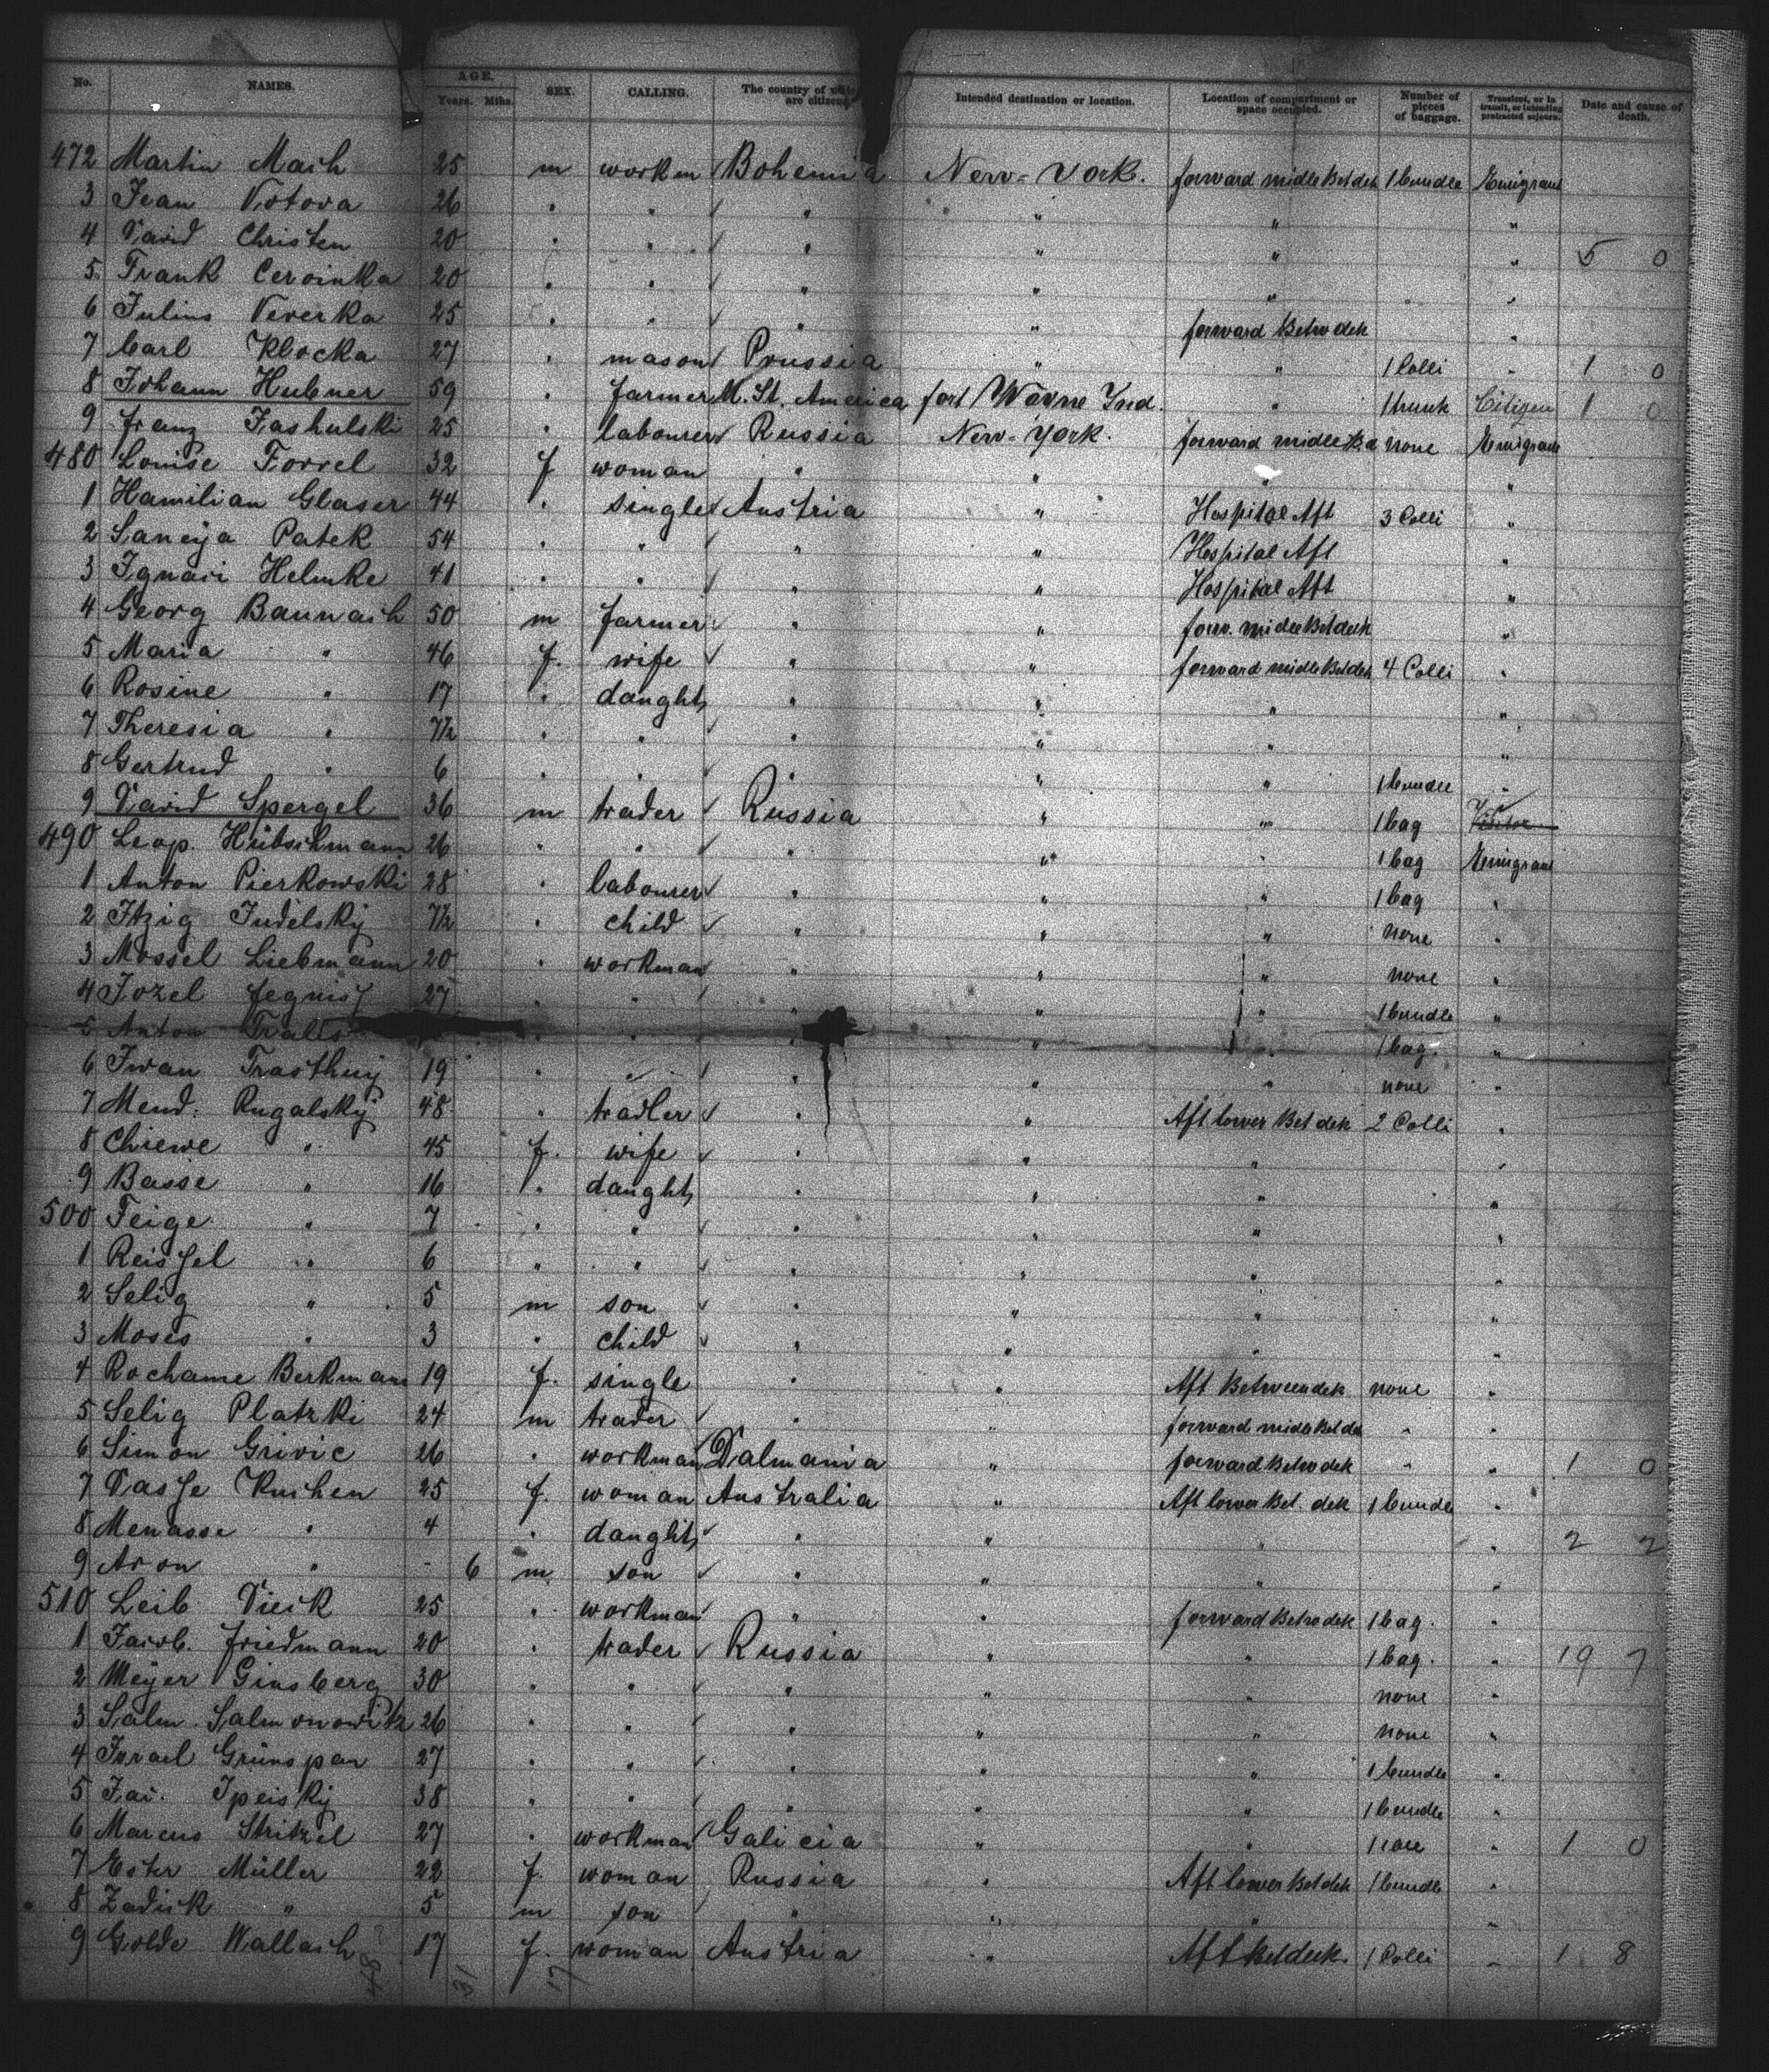 No. NAMES. AGE. Years. Mths. SEX. CALLING. The country of are citizens Intended destination or location. Location of compartment or space occupied. Number of pieces of baggage. Transient, or in transit, or intending protracted sojourn. Date and cause of death.
472 Martin Mach 25 m workm Bohemia New-York. forward midle Bet dek 1 bundle Emigrant
3 Jean Votova 26 " " " " " "
4 David Christen 20 " " " " " " 5 0
5 Frank Cervinka 20 " " " " " "
6 Julius Ververka 25 " " " " forward Betw dek "
7 Carl Klocka 27 " mason Prussia " " 1 Colli " 1 0
8 Johann Hubner 59 " farmer U. St. America fort Wayne Ind. " 1 trunk Citizen 1 0
9 franz Jashulski 25 " labourer Russia New-York. forward midle none Emigrant
480 Louise Forrel 32 f woman " " " "
1 Hamilian Glaser 44 " single Austria " Hospital Aft 3 Colli "
2 Patek 54 " " " " Hospital Aft "
3 Helmke 41 " " " " Hospital Aft "
4 Georg Baunach 50 m farmer " " forw. midle Bet deck "
5 Maria " 46 f. wife " " forward midle Bet dek 4 Colli "
6 Rosine " 17 " daught " " " "
7 Theresia " 7½ " " " " " "
8 Gertrud " 6 " " " " " 1 bundle "
9 David Spergel 36 m trader Russia " " 1 bag
490 Leop. Hübschmann 26 " " " " " 1 bag Emigrant
1 Anton Pierkowski 28 " labourer " " " 1 bag "
2 Itzig Judelsky 7½ " child " " " none "
3 Mossel Liebmann 20 " workman " " " none "
4 Jozel 27 " " " " " 1 bundle "
5 Anton " " " " " 1 bag. "
6 Iwan 19 " " " " " none "
7 Mend. Rugalsky 48 " tradler " " Aft lower Bet dek 2 Colli "
8 Chiewe " 45 f. wife " " " "
9 Basse " 16 " daught " " " "
500 Feige " 7 " " " " " "
1 Reissel " 6 " " " " " "
2 Selig " 5 m son " " " "
3 Moses " 3 " child " " " "
4 Rochame Berkmann 19 f. single " " Aft Betweendek none "
5 Selig Platzki 24 m trader " " forward midle Bet dek " "
6 Simon Grivic 26 " workman Dalmania " forward Betw dek " " 1 0
7 Kuchen 25 f. woman Australia " Aft lower Bet. dek 1 bundle "
8 Menasse " 4 " daught " " " " 2 2
9 Aron " - 6 m son " " " "
510 Leib 25 " workman " " forward Betw dek 1 bag. "
1 Jacob. friedmann 20 " trader Russia " " 1 bag. " 19 7
2 Meyer Ginsberg 30 " " " " " none "
3 Salm. Salmonowitz 26 " " " " " none "
4 Israel Grünspan 27 " " " " " 1 bundle "
5 38 " " " " " 1 bundle "
6 Marcus Stritzel 27 " workman Galicia " " " 1 0
7 Ester Müller 22 f. woman Russia " Aft lower Bet dek 1 bundle "
8 Zadick " 5 m son " " " "
9 Golde Wallach 17 f. woman Austria " Aft Bet deck. 1 Colli " 1 8
31 17